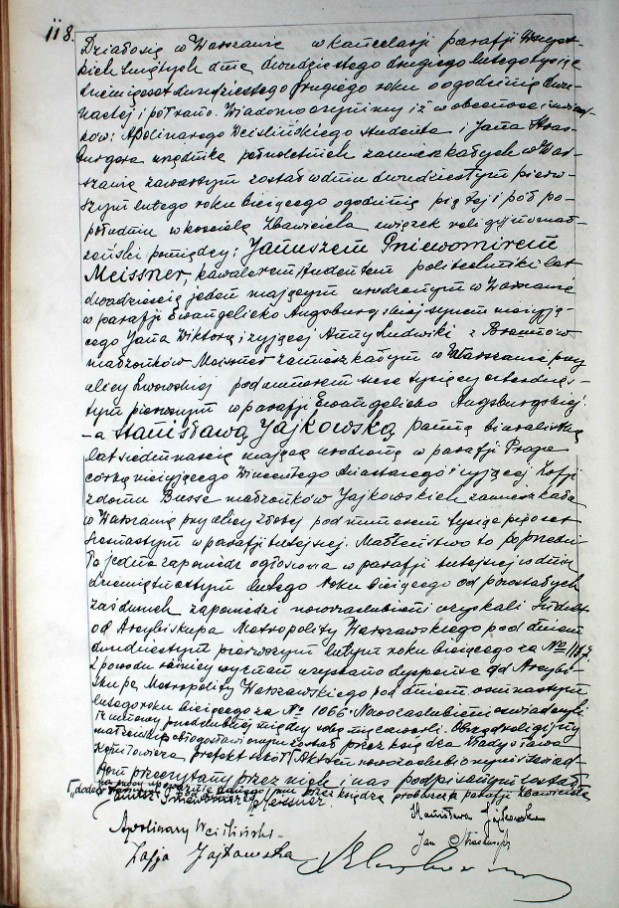 118.
Działo się w Warszawie w kancelarji parafji Wszyst-
kich Świętych dnia dwudziestego drugiego lutego tysiąc
dziewięćset dwudziestego drugiego roku o godzinie dwu-
nastej i pół rano. Wiadomo czynimy iż w obecności świad-
ków: Apolinarego Weislińskiego studenta i Jana Stras-
burgera urzędnika pełnoletnich zamieszkałych w War-
szawie zawartym został w dniu dwudziestym pierw-
szym lutego roku bieżącego o godzinie piątej i pół po-
południu w kościele Zbawiciela związek religijny mał-
żeński pomiędzy: Januszem Gniewomirem
Meissner, kawalerem studentem politechniki lat
dwadzieścia jeden mającym urodzonym w Warszawie
w parafji Ewangelicko Augsburskiej synem nieżyją-
cego Jana Wiktora i żyjącej Anny Ludwiki z
małżonków Meissner zamieszkałym w Warszawie przy
ulicy Lwowskiej pod numerem sześć tysięcy
tym pierwszym w parafji Ewangelicko Augsburskiej
- a Stanisławą Jajkowską panną biuralistką
lat siedemnaście mającą urodzoną w parafji Praga
córką nieżyjącego Wincentego Anastazego i żyjącej Zofji
z domu Busse małżonków Jajkowskich zamieszkałą
w Warszawie przy ulicy Złotej pod numerem tysiąc pięćset
w parafji tutejszej. Małżeństwo to poprzedzi-
ła jedna zapowiedź ogłoszona w parafji tutejszej w dniu
dziewiętnastym lutego roku bieżącego od pozostałych
zaś dwuch zapowiedzi nowozaślubieni uzyskali
od Arcybiskupa Metropolity Warszawskiego pod dniem
dwudziestym pierwszym lutym roku bieżącego za №
z powodu różnicy wyznań uzyskano dyspensę od Arcybi-
skupa Metropolity Warszawskiego pod dniem osiemnastym
lutego roku bieżącego za № 1066. Nowozaślubieni oświadczyli
iż umowy przedślubnej między sobą nie zawarli. Obrzęd religijny
małżeński pobłogosławiony został przez księdza Władysława
prefekta szkół. Akt ten nowozaślubionym i świad-
kom przeczytany przez nich i nas podpisanym został
przez księdza proboszcza parafji Zbawiciela
Janusz Gniewomir Meissner.
Stanisława Jajkowska
Apolinary Weisliński
Jan Strasburger
Zofja Jajkowska